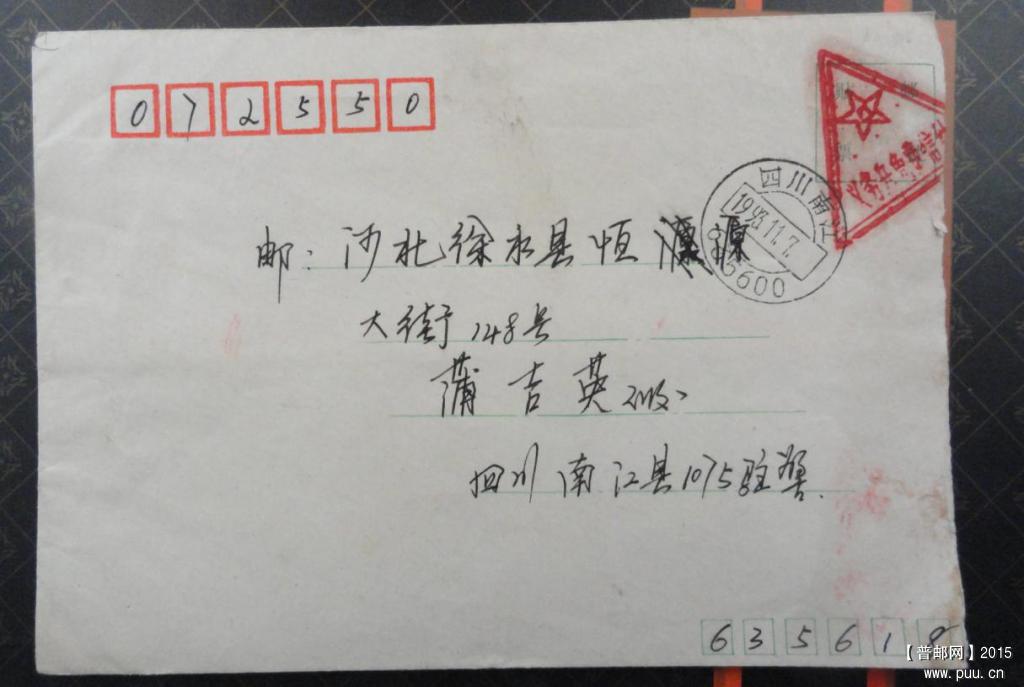 072550
义务兵免费信件
四川南江
1993.11.7.
635600
邮：河北徐水县恒源
大街148号
蒲吉英收
四川南江县1075驻军.
635618
【普邮网】2015
www.puu.cn